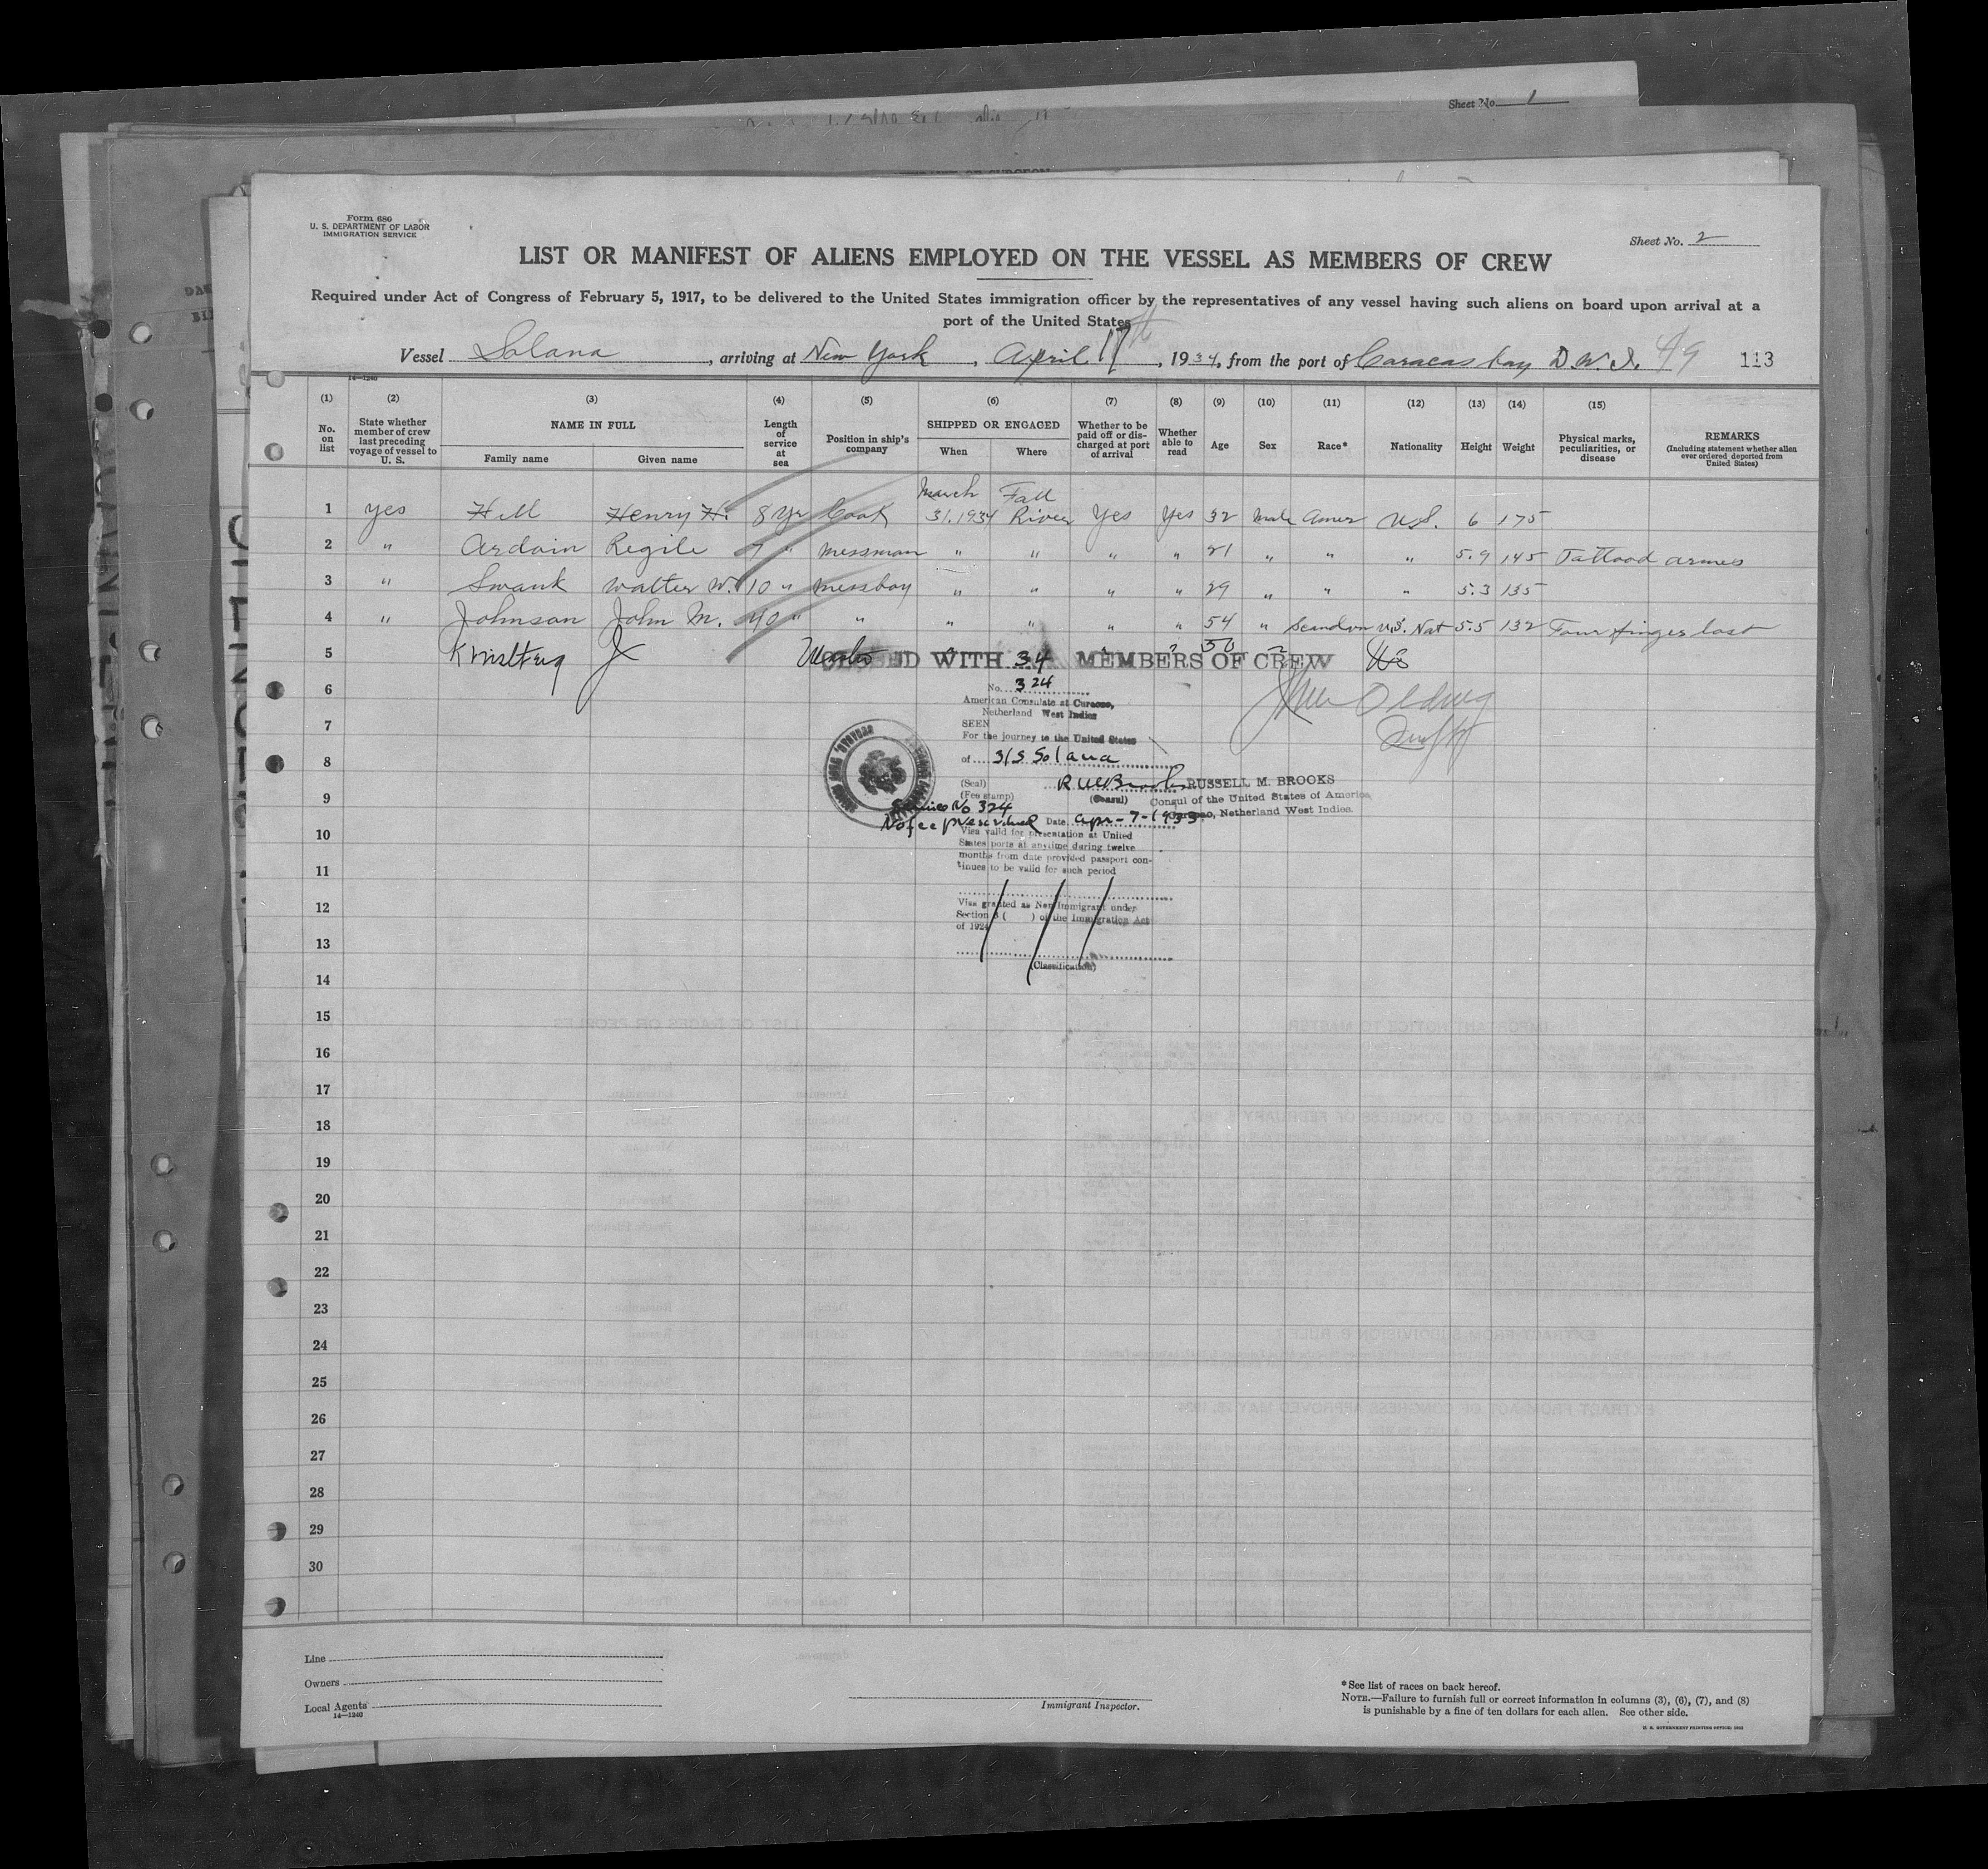 Sheet No. 1
Form 680
U. S. DEPARTMENT OF LABOR
IMMIGRATION SERVICE
Sheet No. 2
LIST OR MANIFEST OF ALIENS EMPLOYED ON THE VESSEL AS MEMBERS OF CREW
Required under Act of Congress of February 5, 1917, to be delivered to the United States immigration officer by the representatives of any vessel having such aliens on board upon arrival at a
port of the United States
Vessel Solana, arriving at New York, April 17th, 1934, from the port of Caracas bay D.W.I. 49 113
14—1240
(1) (2) (3) (4) (5) (6) (7) (8) (9) (10) (11) (12) (13) (14) (15)
No. on list State whether member of crew last preceding voyage of vessel to U. S. NAME IN FULL Family name Given name Length of service at sea Position in ship's company SHIPPED OR ENGAGED When Where Whether to be paid off or discharged at port of arrival Whether able to read Age Sex Race* Nationality Height Weight Physical marks, peculiarities, or disease REMARKS (Including statement whether alien ever ordered deported from United States)
1 yes Hill Henry H. 8 yr Cook March 31.1934 Fall River Yes Yes 32 male Amer U.S. 6 175
2 " Ardoin Regile 7 " messman " " " " 21 " " " 5.9 145 Tattood armes
3 " Swank Walter W. 10 " messboy " " " " 29 " " " 5.3 135
4 " Johnson John M. 40 " " " " " " 54 " Scandvn U.S. Nat 5.5 132 Four finger lost
5 J Master 50 US
WITH 34 MEMBERS OF CREW
6
No. 324
American Consulate at Curacao,
Netherland West Indies
7
SEEN
For the journey to the United States
8
of S/S Solana
(Seal) R M Brooks RUSSELL M. BROOKS
(Fee stamp) (Consul) Consul of the United States of America
9
Service No 324 Curacao, Netherland West Indies.
No fee prescribed Date apr-7-1933
10
Visa valid for presentation at United
States ports at anytime during twelve
months from date provided passport con-
tinues to be valid for such period
11
12
Visa granted as Non Immigrant under
Section 3 ( ) of the Immigration Act
of 1924
13
(Classification)
14
15
16
17
18
19
20
21
22
23
24
25
26
27
28
29
30
Line
Owners
Local Agents
14—1240
Immigrant Inspector.
*See list of races on back hereof.
NOTE.—Failure to furnish full or correct information in columns (3), (6), (7), and (8)
is punishable by a fine of ten dollars for each alien. See other side.